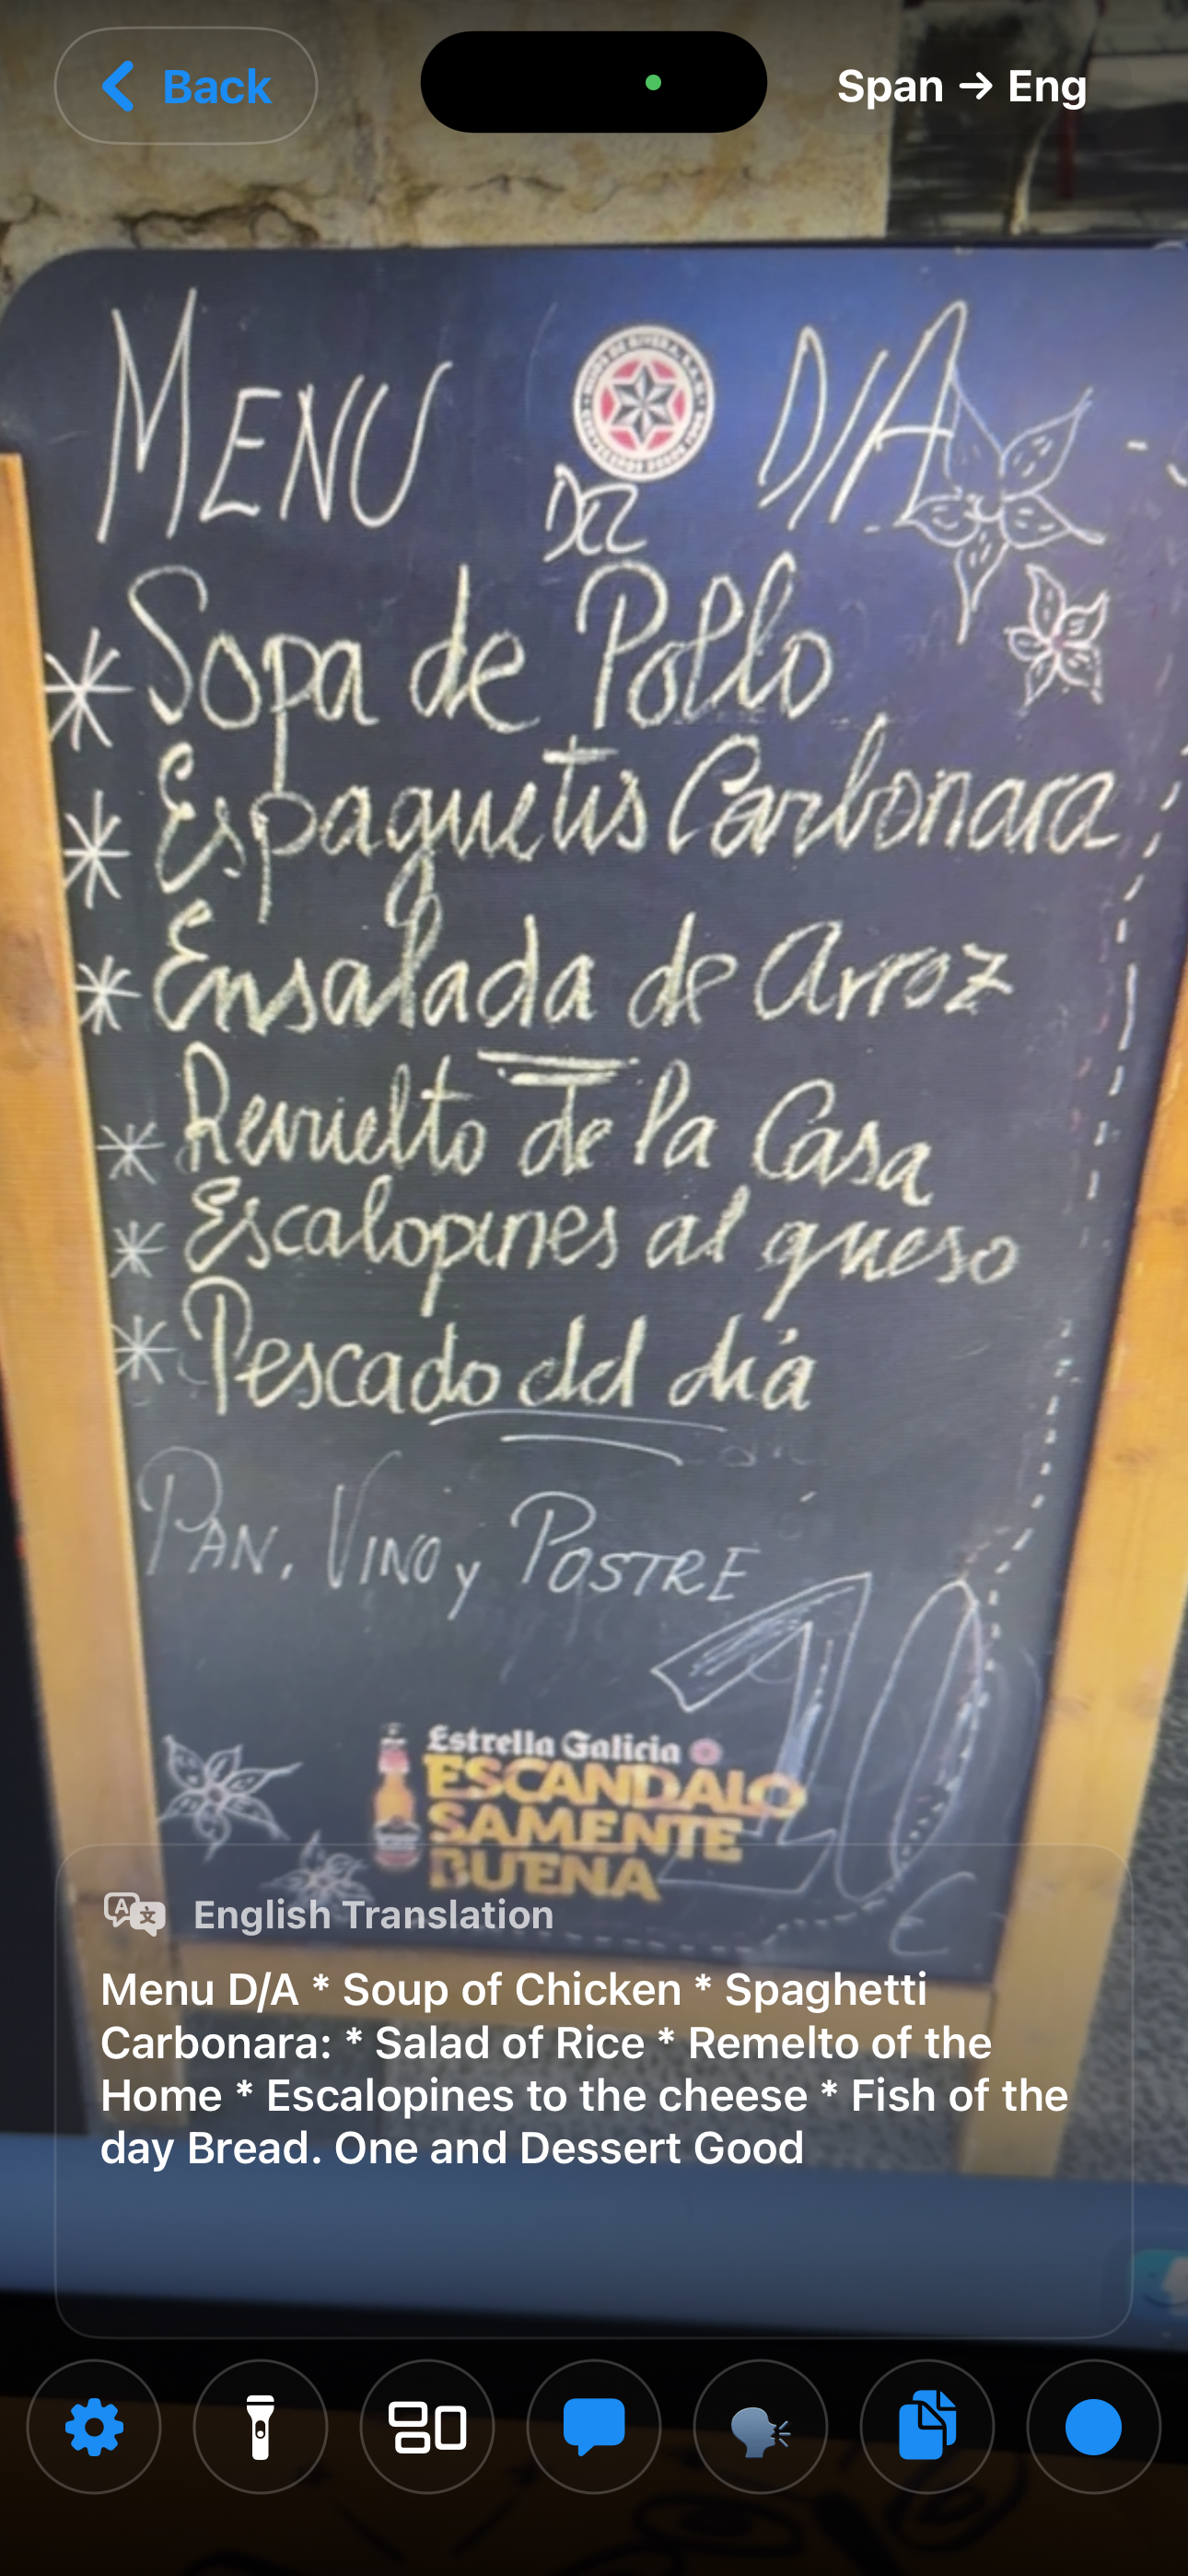 Back
Span → Eng
MENU DEL DIA
* Sopa de Pollo
* Espaguetis Carbonara
* Ensalada de Arroz
* Revuelto de la Casa
* Escalopines al queso
* Pescado del día
PAN, VINO y POSTRE
10 €
Estrella Galicia
ESCANDALO
SAMENTE
BUENA
English Translation
Menu D/A * Soup of Chicken * Spaghetti
Carbonara: * Salad of Rice * Remelto of the
Home * Escalopines to the cheese * Fish of the
day Bread. One and Dessert Good